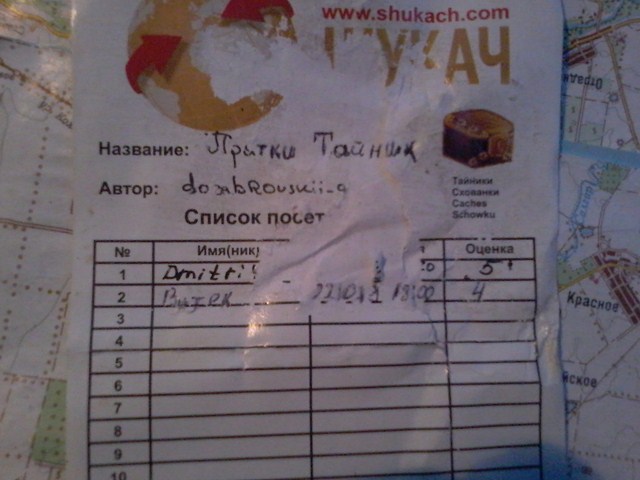 www.shukach.com
ШУКАЧ
Название: Прятки Тайник
Автор: dombrovskii-a
Тайники
Схованки
Caches
Schowku
Список посет
№ Имя(ник) Оценка
1 Dmitri 5+
2 18:00 4
3
4
5
6
7
8
9
10
Отрадн
Красное
йское